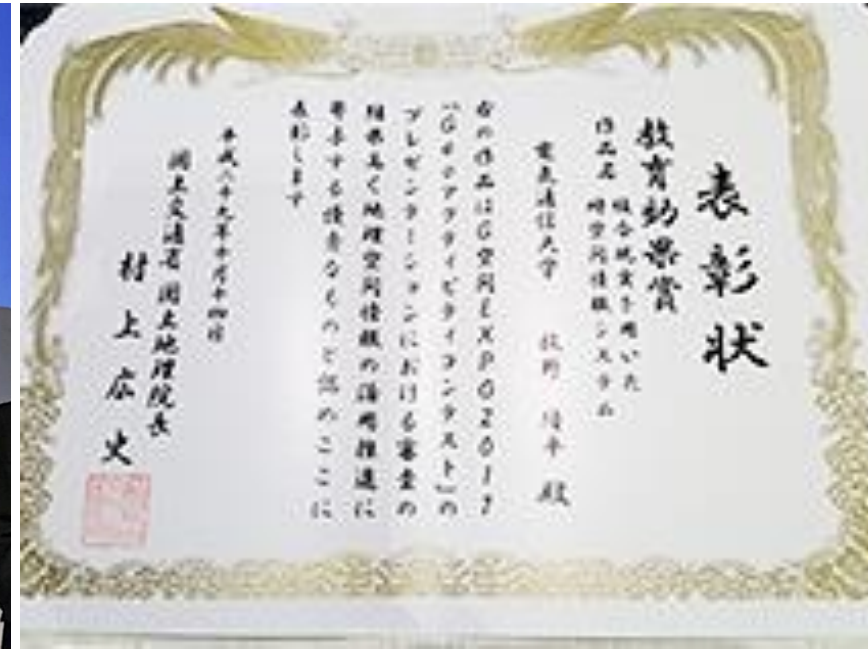 表彰状
教育効果賞
作品名 複合現実を用いた
時空間情報システム
電気通信大学 牧野 殿
右の作品はG空間EXPO2017
「Geoアクティビティコンテスト」の
プレゼンテーションにおける審査の
結果高く地理空間情報の活用推進に
寄与する優秀なものと認めここに
表彰します
平成二十九年十月十四日
国土交通省 国土地理院長
村上広史